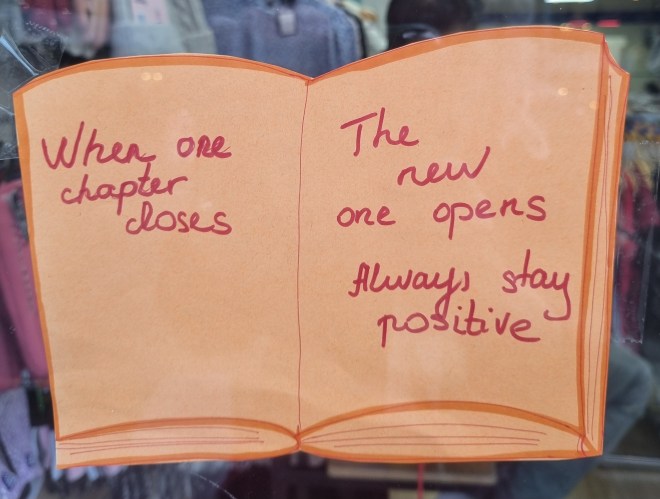 When one
chapter
closes
The
new
one opens
Always stay
positive